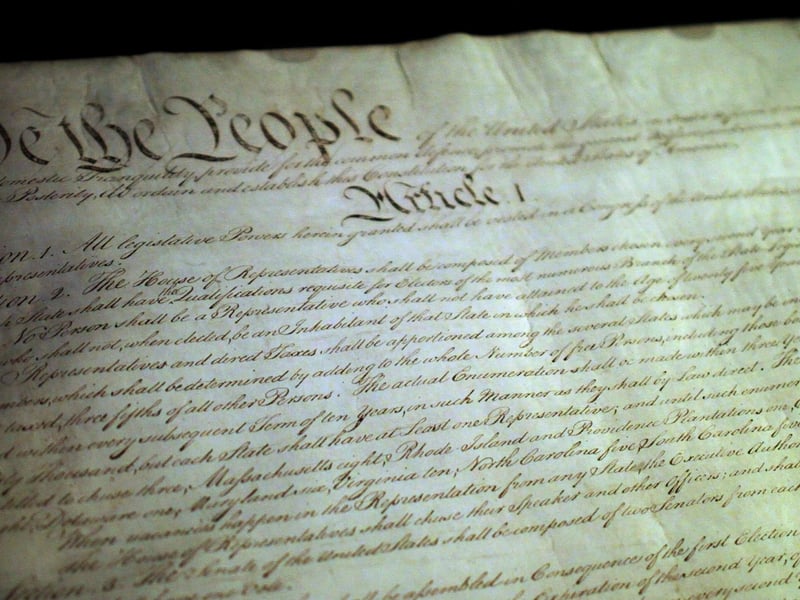 We the People of the United States, in
domestic Tranquility, provide for the common defence,
Posterity, do ordain and establish this Constitution
Article. I.
on. 1. All legislative Powers herein granted shall be vested in a Congress of the United States
epresentatives.
ion. 2. The House of Representatives shall be composed of Members chosen every second Year
State shall have the Qualifications requisite for Electors of the most numerous Branch of the State
No Person shall be a Representative who shall not have attained to the Age of twenty five Years
who shall not, when elected, be an Inhabitant of that State in which he shall be chosen.
Representatives and direct Taxes shall be apportioned among the several States which may be in
mbers, which shall be determined by adding to the whole Number of free Persons, including those bo
taxed, three fifths of all other Persons. The actual Enumeration shall be made within three Ye
d within every subsequent Term of ten Years, in such Manner as they shall by Law direct. The
ty Thousand, but each State shall have at Least one Representative; and until such enumer
titled to chuse three, Massachusetts eight, Rhode Island and Providence Plantations one,
Delaware one, Maryland six, Virginia ten, North Carolina five, South Carolina five
When vacancies happen in the Representation from any State, the Executive Autho
The House of Representatives shall chuse their Speaker and other Officers; and shal
ection. 3. The Senate of the United States shall be composed of two Senators from each
have one Vote.
shall be assembled in Consequence of the first Election
Expiration of the second Year, of
every second